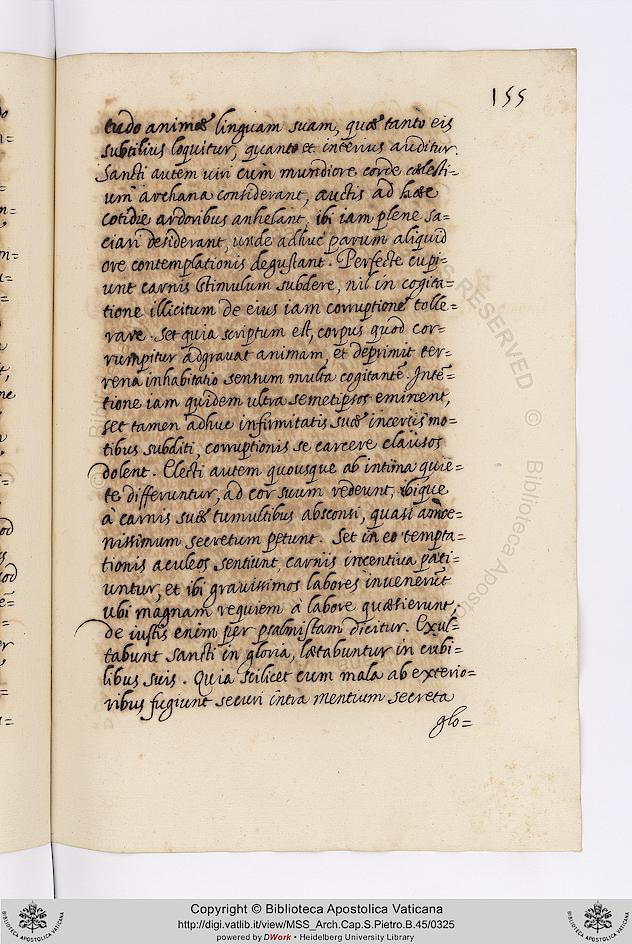 155
tudo animæ linguam suam, quæ tanto eis
subtilius loquitur, quanto et interius auditur.
Sancti autem uiri cum mundiore corde cælesti-
um archana considerant, auctis ad hæc
cotidie ardoribus anhelant, ibi iam plene sa=
ciari desiderant, unde adhuc parum aliquid
ore contemplationis degustant. Perfecte cupi=
unt carnis stimulum subdere, nil in cogita=
tione illicitum de eius iam corruptione tolle=
rare. Set quia scriptum est, corpus quod cor=
rumpitur adgrauat animam, et deprimit ter=
rena inhabitatio sensum multa cogitantē. Intē=
tione iam quidem ultra semetipsos eminent,
set tamen adhuc infirmitatis suæ incertis mo=
tibus subditi, corruptionis se carcere clausos
dolent. Electi autem quousque ab intima quie=
te differuntur, ad cor suum redeunt, ibique
à carnis suæ tumultibus absconsi, quasi amœ=
nissimum secretum petunt. Set in eo tempta=
tionis aculeos sentiunt, carnis incentiua pati=
untur, et ibi grauissimos labores inuenerūt
ubi magnam requiem à labore quæsierunt.
de iustis enim per psalmistam dicitur. Exul=
tabunt sancti in gloria, lætabuntur in cubi=
libus suis. Quia scilicet cum mala ab exterio=
ribus fugiunt securi intra mentium secreta
glo=
RESERVED © Biblioteca Apostolica
Copyright © Biblioteca Apostolica Vaticana
http://digi.vatlib.it/view/MSS_Arch.Cap.S.Pietro.B.45/0325
powered by DWork • Heidelberg University Library